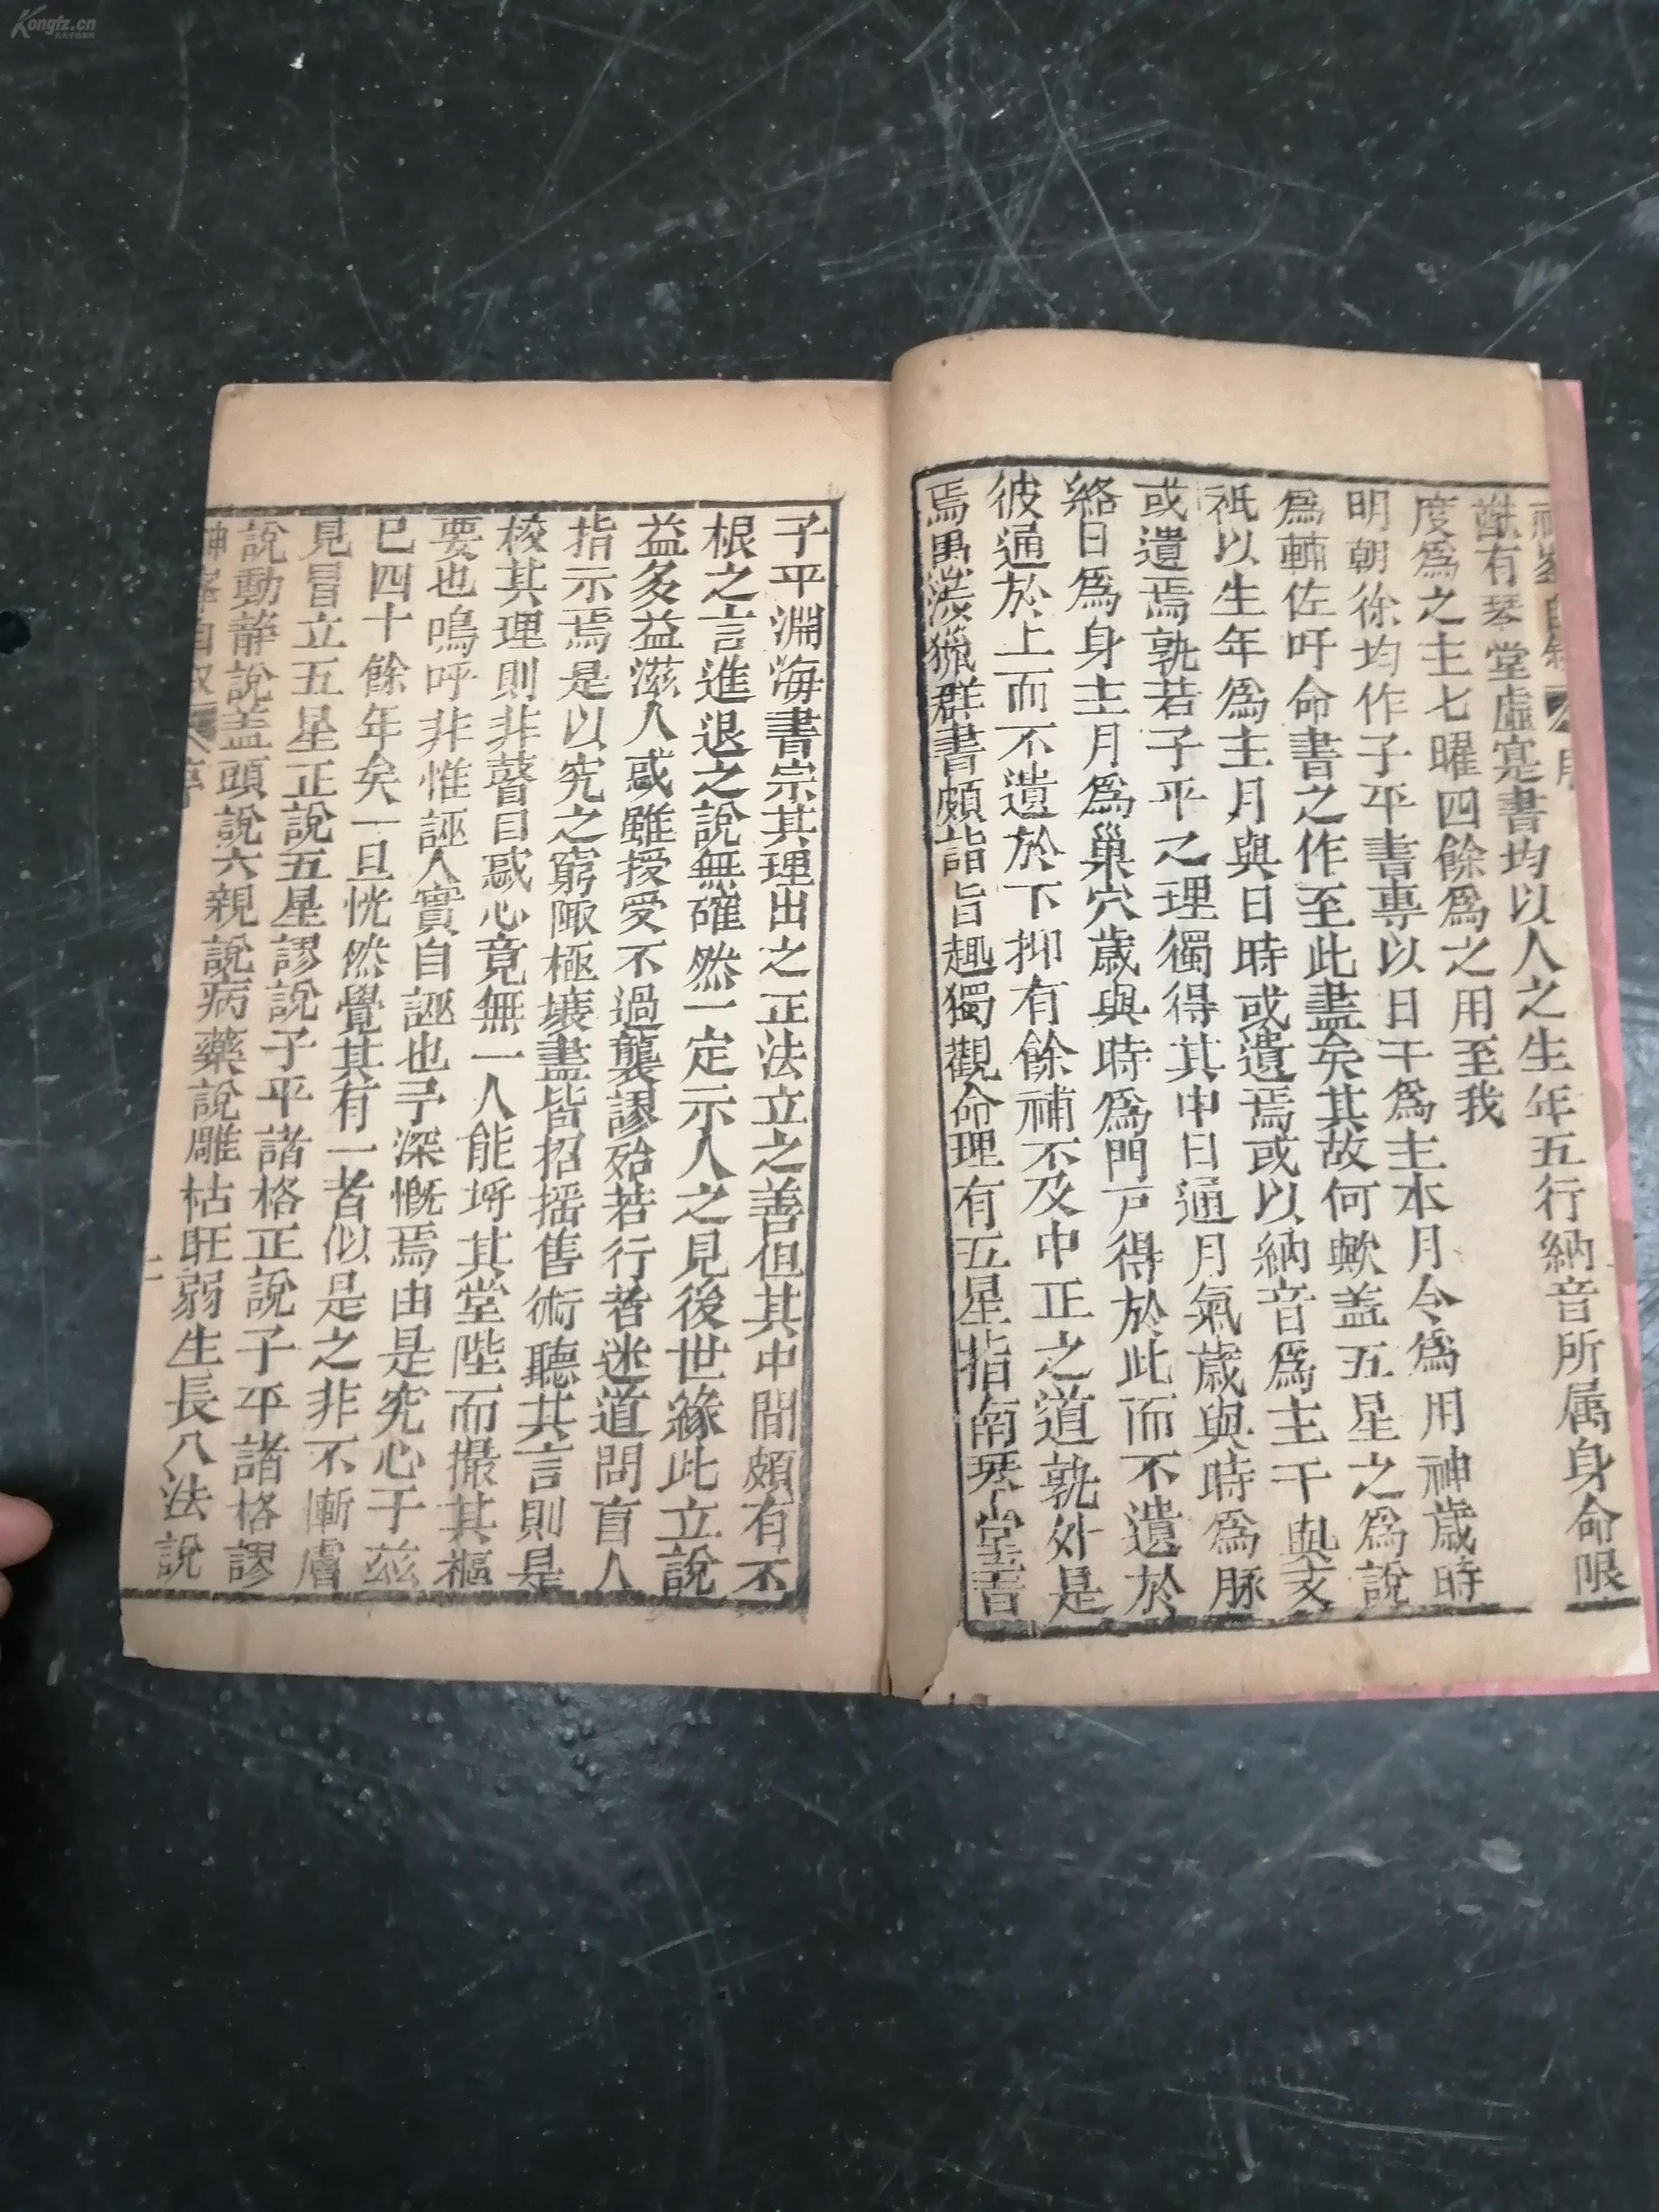 酞有琴堂虛寔書均以人之生年五行納音所属身命限
度為之主七曜四餘爲之用至我
明朝徐均作子平書專以日干爲主本月令爲用神歲時
爲輔佐吁命書之作至此盡矣其故何歟盖五星之爲說
祇以生年爲主月與日時或遺焉或以納音爲主干與支
或遺焉孰若子平之理獨得其中日通月氣歲與時爲脉
絡日爲身主月爲巢穴歲與時爲門戸得於此而不遺於
彼通於上而不遺於下抑有餘補不及中正之道孰外是
焉愚漁獵群書頗詣旨趣獨觀命理有五星指南琴堂等書
子平淵海書宗其理出之正法立之善但其中間頗有不
根之言進退之說無確然一定示人之見後世緣此立說
益多益滋人惑雖授受不過襲謬殆若行者迷道問盲人
指示焉是以究之窮陬極壤盡皆招摇售術聽其言則是
校其理則非瞽目惑心竟無一人能埓其堂陛而撮其樞
要也嗚呼非惟誣人實自誣也予深慨焉由是究心于茲
已四十餘年矣一旦恍然覺其有一者似是之非不慚膚
見冒立五星正說五星謬說子平諸格正說子平諸格謬
說動静說盖頭說六親說病藥說雕枯旺弱生長八法說
二
Kongfz.cn